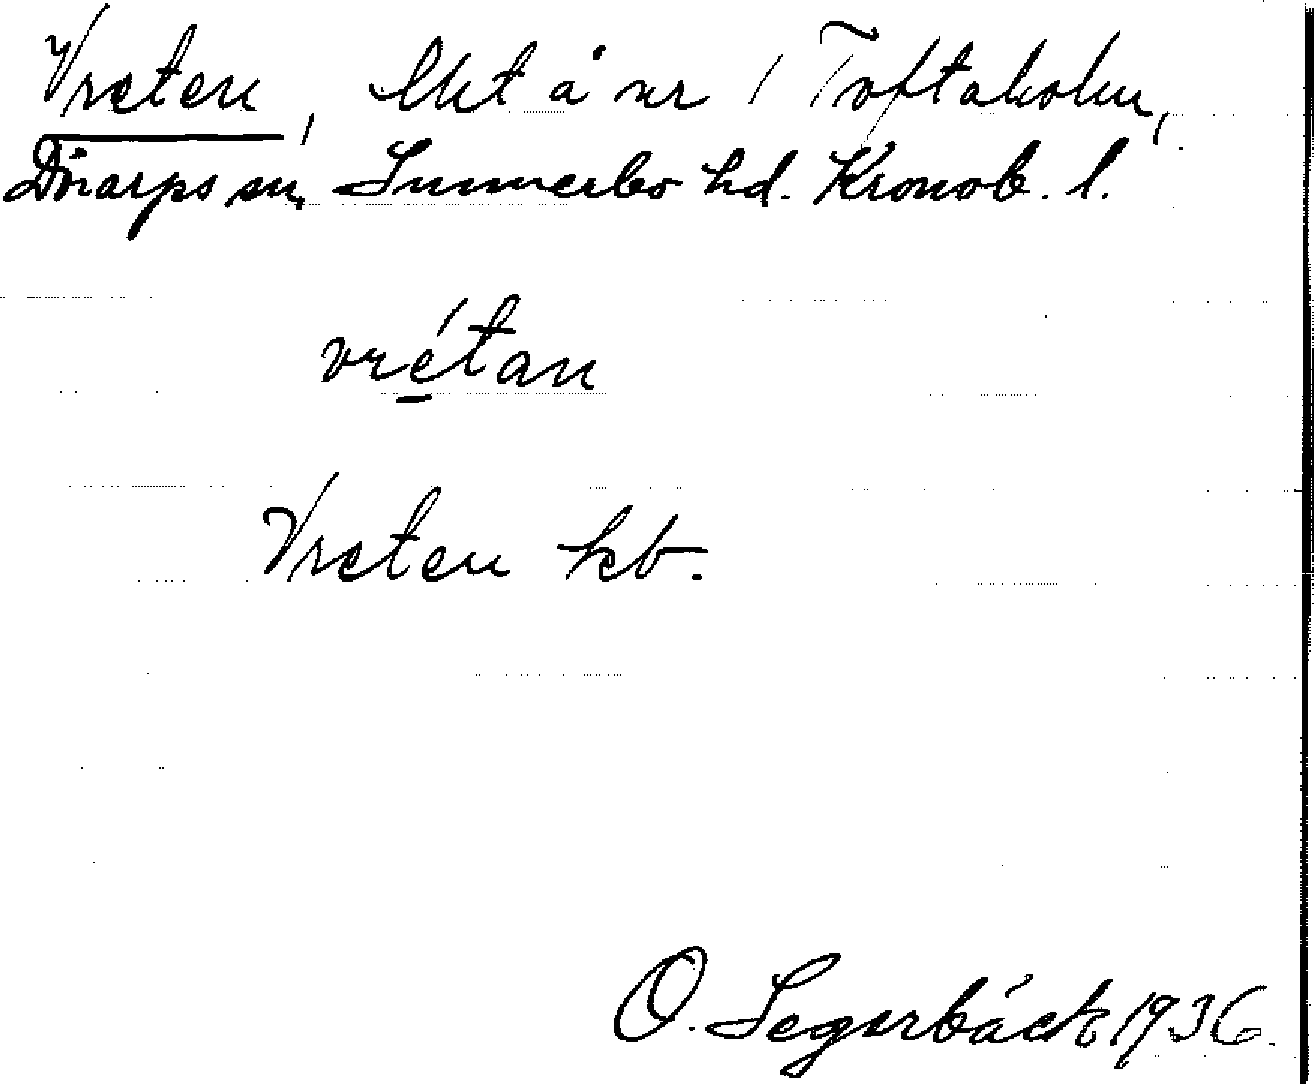 Vreten, lht å nr 1 Toftaholm,
Dörarps sn, Sunnerbo hd. Kronob. l.
vrétan
Vreten kb.
O. Segerbäck 1936.